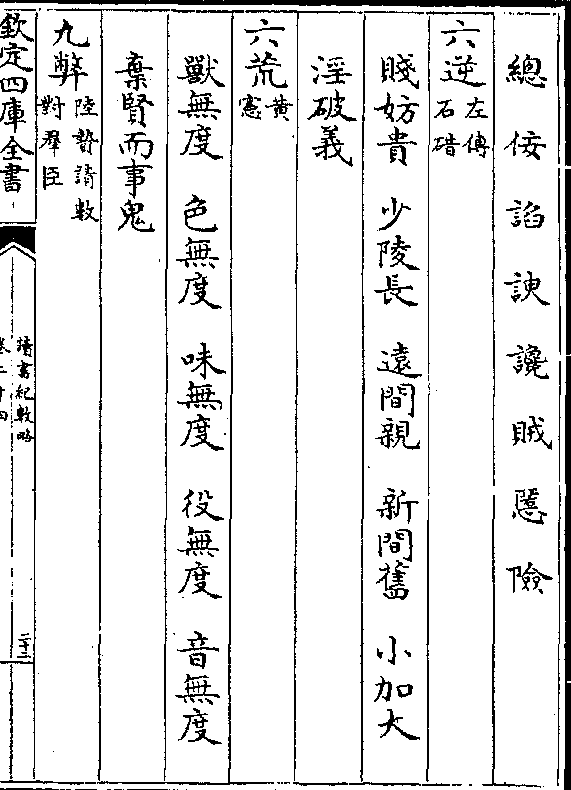 總 佞 諂 諛 讒 賊 慝 險
六逆 左傳石碏
賤妨貴 少陵長 遠間親 新間舊 小加大
淫破義
六荒 黃憲
獸無度 色無度 味無度 役無度 音無度
棄賢而事鬼
九弊 陸贄請數對羣臣
欽定四庫全書
讀書紀數略
卷二十四
二十二